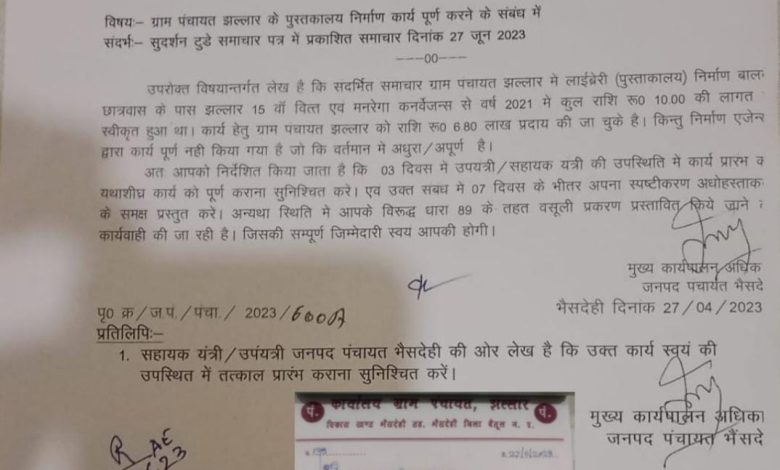 विषयः– ग्राम पंचायत झल्लार के पुस्तकालय निर्माण कार्य पूर्ण करने के संबंध में
संदर्भः– सुदर्शन टुडे समाचार पत्र में प्रकाशित समाचार दिनांक 27 जून 2023
---00---
उपरोक्त विषयान्तर्गत लेख है कि संदर्भित समाचार ग्राम पंचायत झल्लार मे लाईब्रेरी (पुस्ताकालय) निर्माण बाल
छात्रवास के पास झल्लार 15 वॉ वित्त एवं मनरेगा कनर्वेजन्स से वर्ष 2021 मे कुल राशि रू0 10.00 की लागत
स्वीकृत हुआ था। कार्य हेतु ग्राम पंचायत झल्लार को राशि रू0 6.80 लाख प्रदाय की जा चुके है। किन्तु निर्माण एजेन्स
द्वारा कार्य पूर्ण नही किया गया है जो कि वर्तमान मे अधुरा/अपूर्ण है।
अत आपको निर्देशित किया जाता है कि 03 दिवस मे उपयत्री/सहायक यत्री की उपस्थिति मे कार्य प्रारभ क
यथाशीघ्र कार्य को पूर्ण कराना सुनिश्चित करे। एव उक्त सबध मे 07 दिवस के भीतर अपना स्पष्टीकरण अधोहस्ताक
के समक्ष प्रस्तुत करें। अन्यथा स्थिति मे आपके विरूद्ध धारा 89 के तहत वसूली प्रकरण प्रस्तावित किये जाने
कार्यवाही की जा रही है। जिसकी सम्पूर्ण जिम्मेदारी स्वय आपकी होगी।
मुख्य कार्यपालन अधिक
जनपद पंचायत भैसदे
भैसदेही दिनांक 27/04/2023
पृ0 क्र/ज.पं./पंचा./ 2023/
प्रतिलिपिः–
1. सहायक यंत्री/उपंयत्री जनपद पंचायत भैसदेही की ओर लेख है कि उक्त कार्य स्वयं की
उपस्थित में तत्काल प्रारंभ कराना सुनिश्चित करें।
मुख्य कार्यपालन अधिका
जनपद पंचायत भैंसदे
पं. कार्यालय ग्राम पंचायत, झल्लार पं.
विकास खण्ड भैसदेही तह. भैसदेही जिला बैतूल म. प्र.